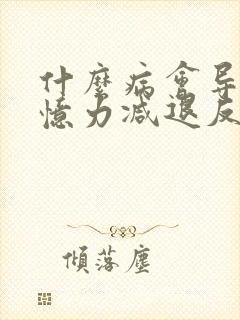 什麼病會导
憶力减退反
傾落塵